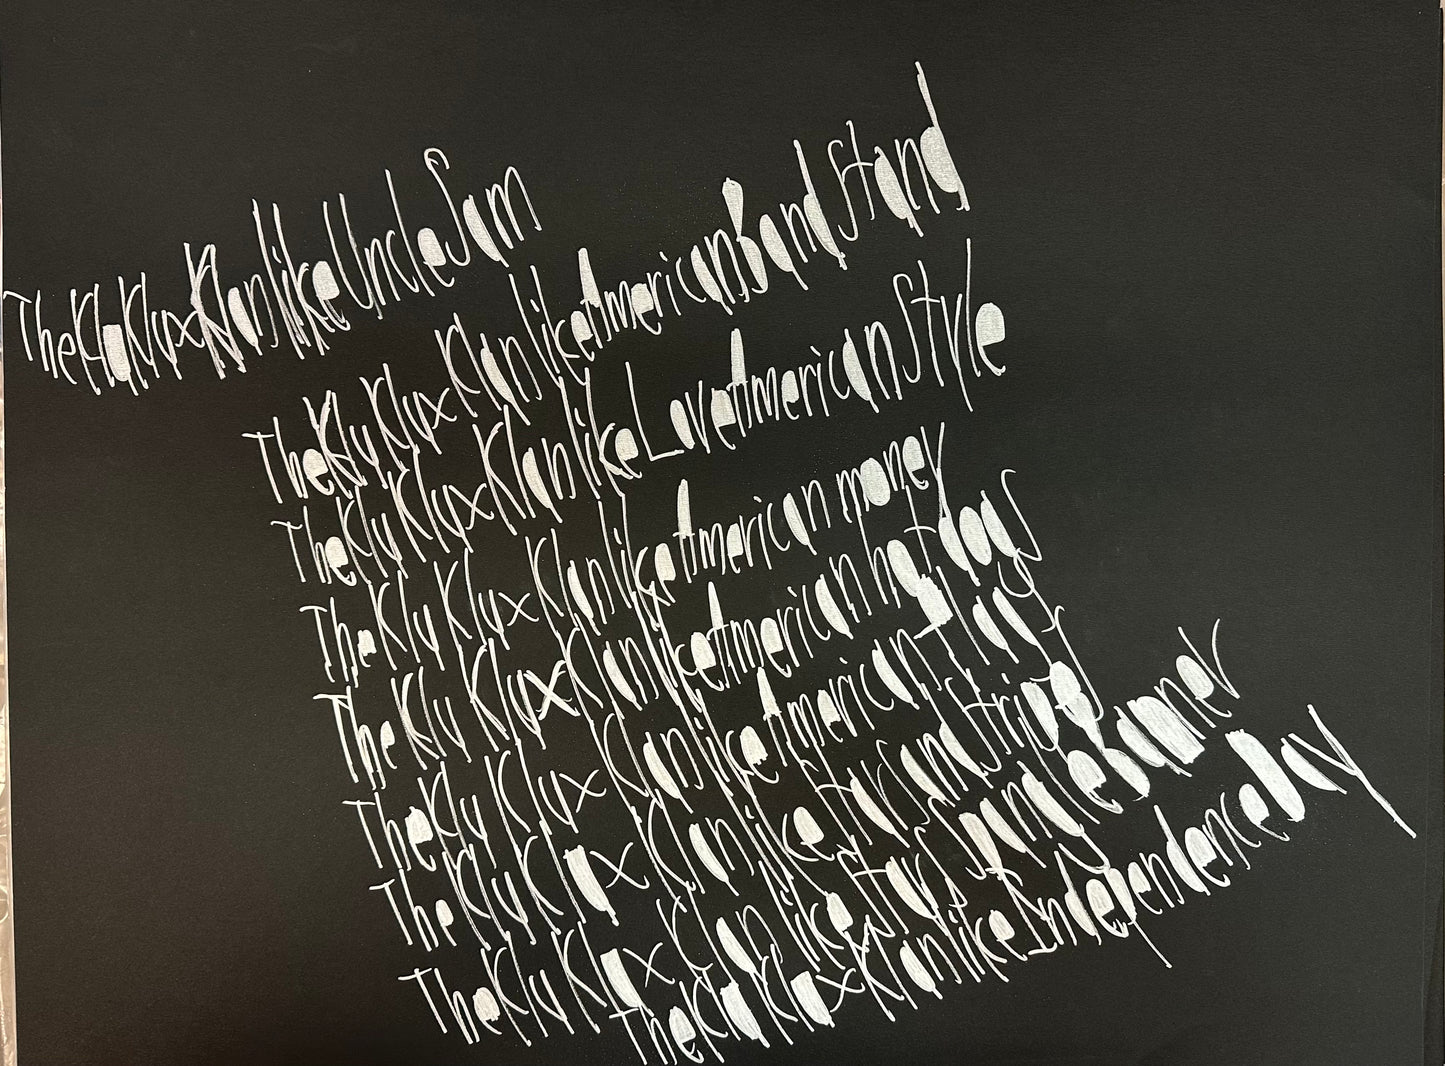 The Kla Klux Klan like Uncle Sam
The Klu Klux Klan like American Band Stand
The Klu Klux Klan like Love American Style
The Klu Klux Klan like American money
The Klu Klux Klan like American hot dogs
The Klu Klux Klan like American Flags
The Klu Klax Klan like Stars and Stripes
The Klu Klax Klan like Stars Spangle Banner
The Kla Klax Klan like Independence Day